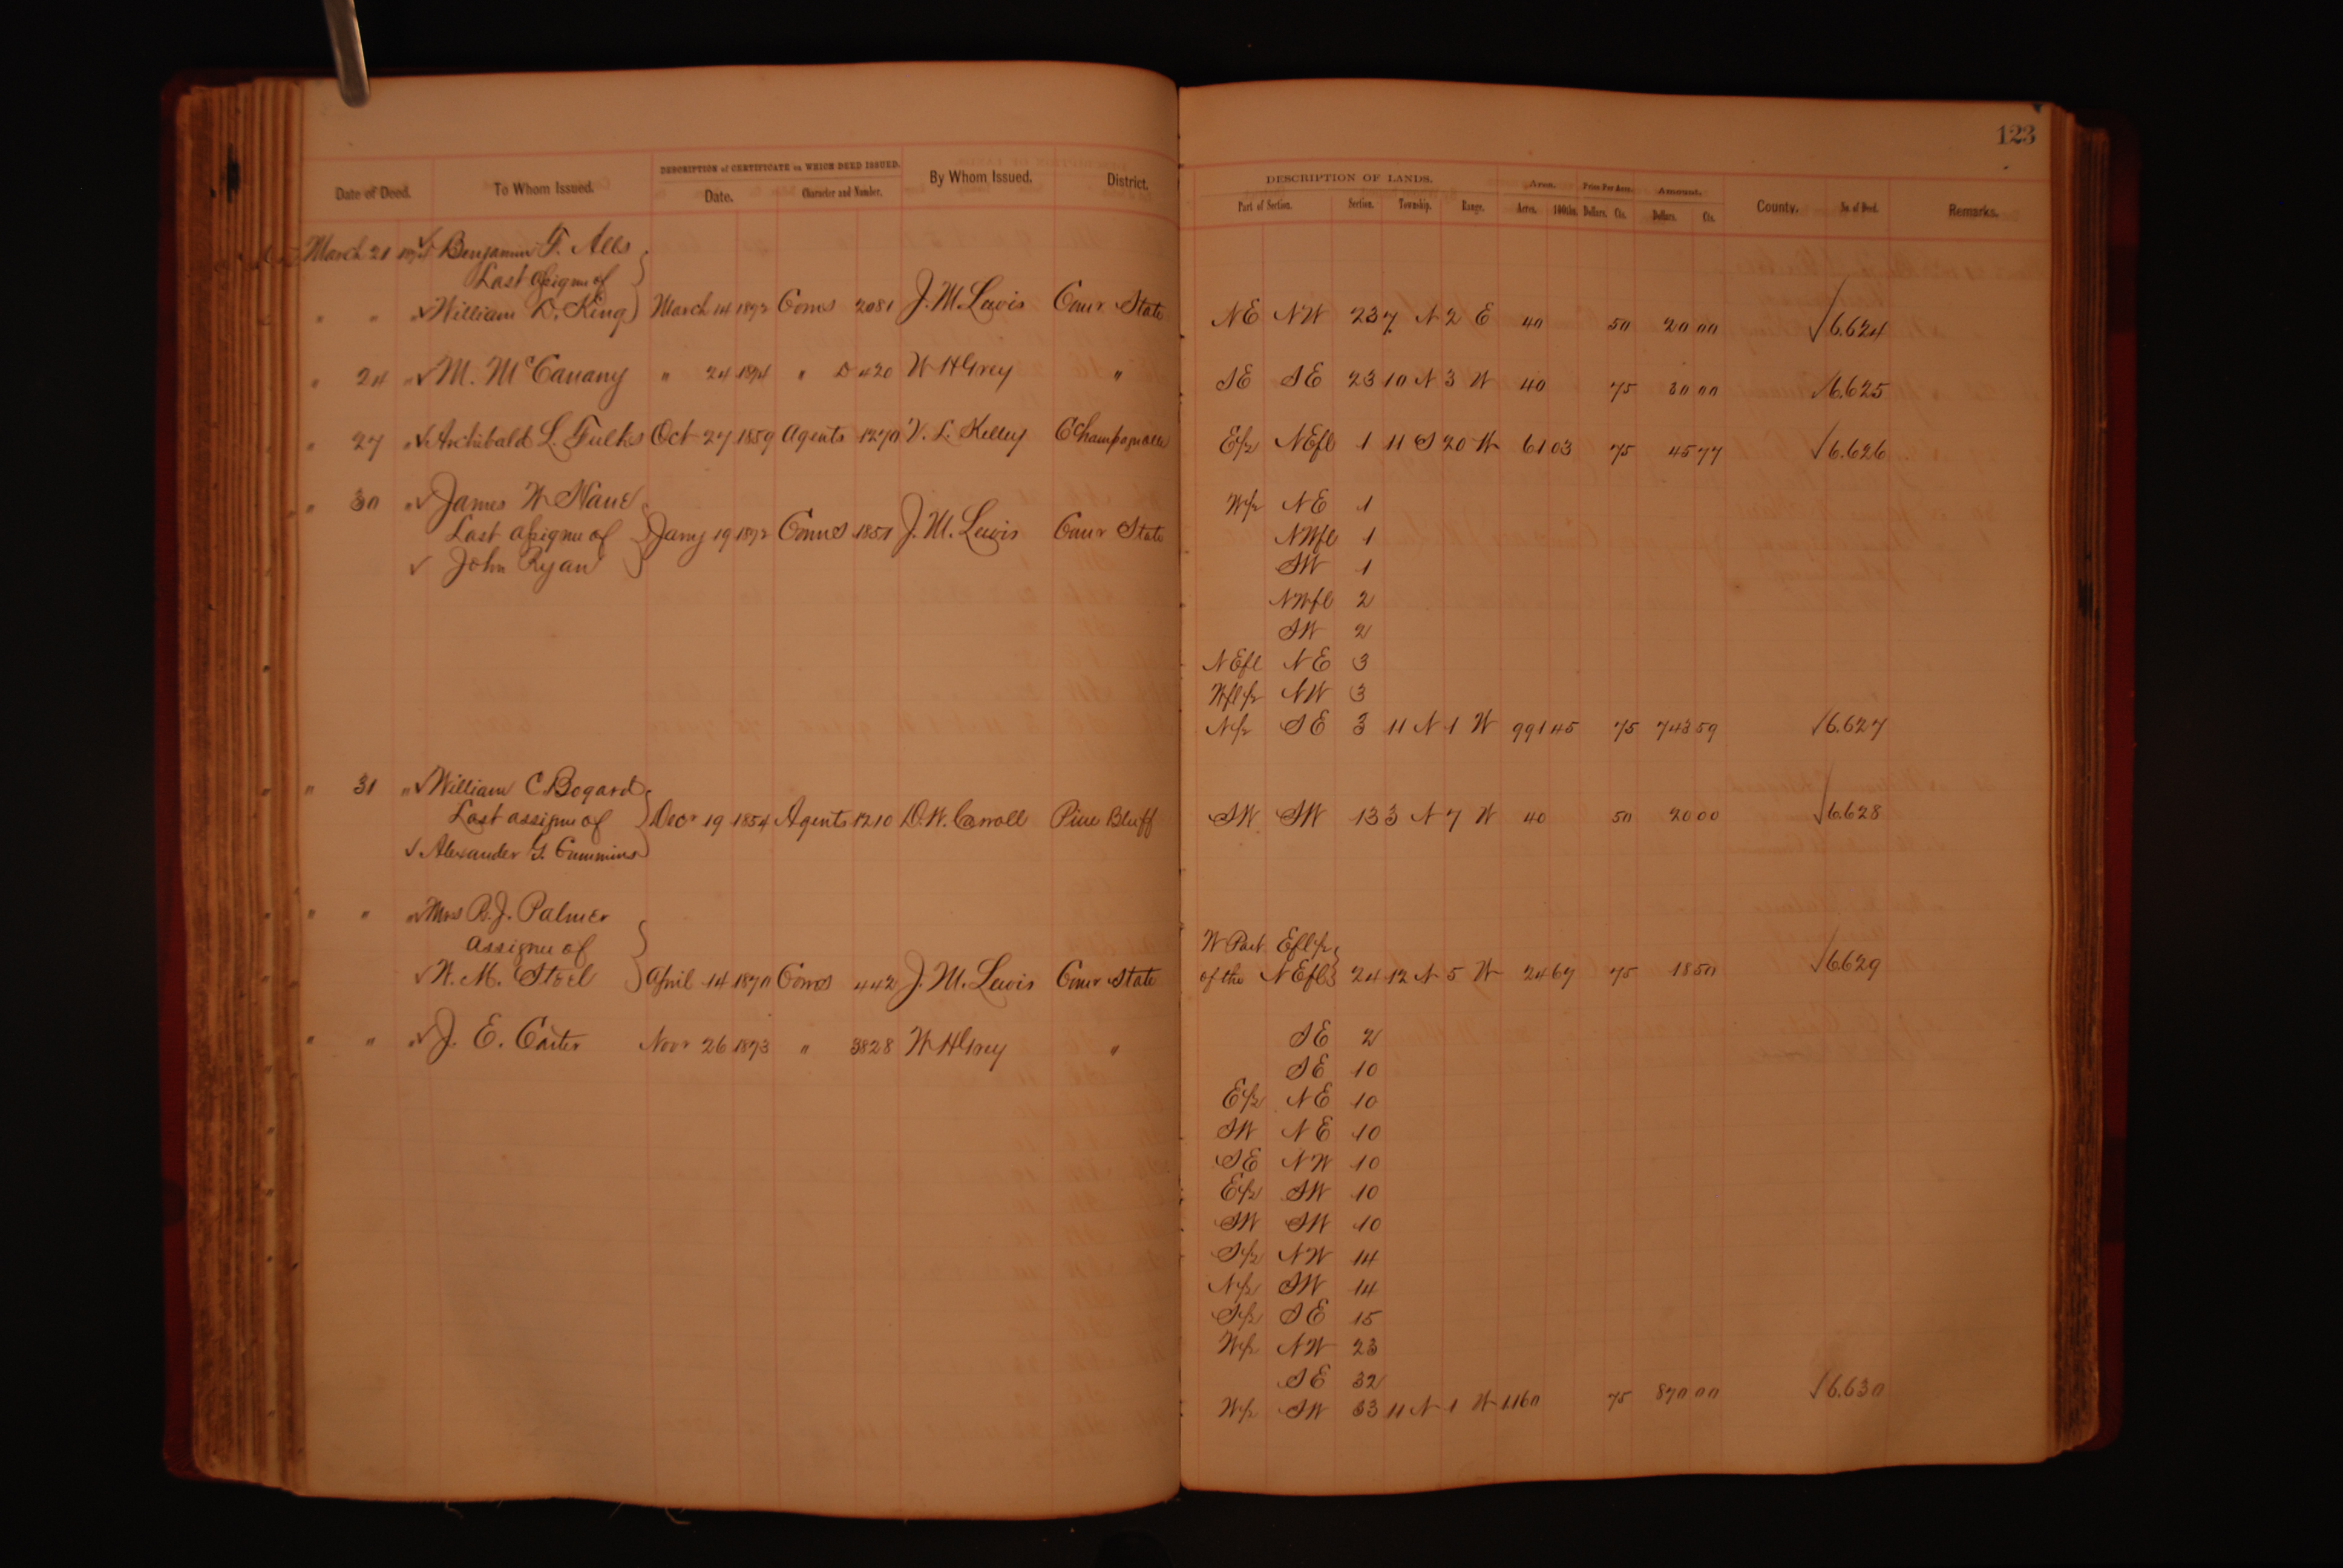 123
DESCRIPTION of CERTIFICATE on WHICH DEED ISSUED. DESCRIPTION OF LANDS. Area. Price Per Acre. Amount.
Date of Deed. To Whom Issued. Date. Character and Number. By Whom Issued. District. Part of Section. Section. Township. Range. Acres. 100ths. Dollars. Cts. Dollars. Cts. County. No. of Deed. Remarks.
March 21 1874 Benjamin F. Albs
Last assignee of
" " " William D. King March 14 1872 Coms 2081 J. M. Lewis Comr State NE NW 23 7 N 2 E 40 50 20 00 6.624
" 24 " M. McCanany " 24 1874 " D 420 W H Grey " SE SE 23 10 N 3 W 40 75 30 00 6.625
" 27 " Archibald L. Fulks Oct 27 1859 Agents 1270 V. L. Kelley Champagnolle E½ NEfl 1 11 S 20 W 61 03 75 45 77 6.626
" 30 " James W Nance W½ NE 1
Last assignee of Jany 19 1872 Coms 1851 J. M. Lewis Comr State NWfl 1
John Ryan SW 1
NWfl 2
SW 2
NEfl NE 3
Wfl½ NW 3
N½ SE 3 11 N 1 W 991 45 75 743 59 6.627
" 31 " William C. Bogard
Last assignee of Decr 19 1854 Agents 1210 D. W. Carroll Pine Bluff SW SW 13 3 N 7 W 40 50 20 00 6.628
Alexander G. Cummins
" " " Mrs R. J. Palmer
assignee of W Part Efl½
W. M. Steel April 14 1870 Coms 442 J. M. Lewis Comr State of the NEfl 24 12 N 5 W 24 67 75 18 50 6.629
" " " J. E. Carter Novr 26 1873 " 3828 W H Grey " SE 2
SE 10
E½ NE 10
SW NE 10
SE NW 10
E½ SW 10
SW SW 10
S½ NW 14
N½ SW 14
S½ SE 15
W½ NW 23
SE 32
W½ SW 33 11 N 1 W 1160 75 870 00 6.630